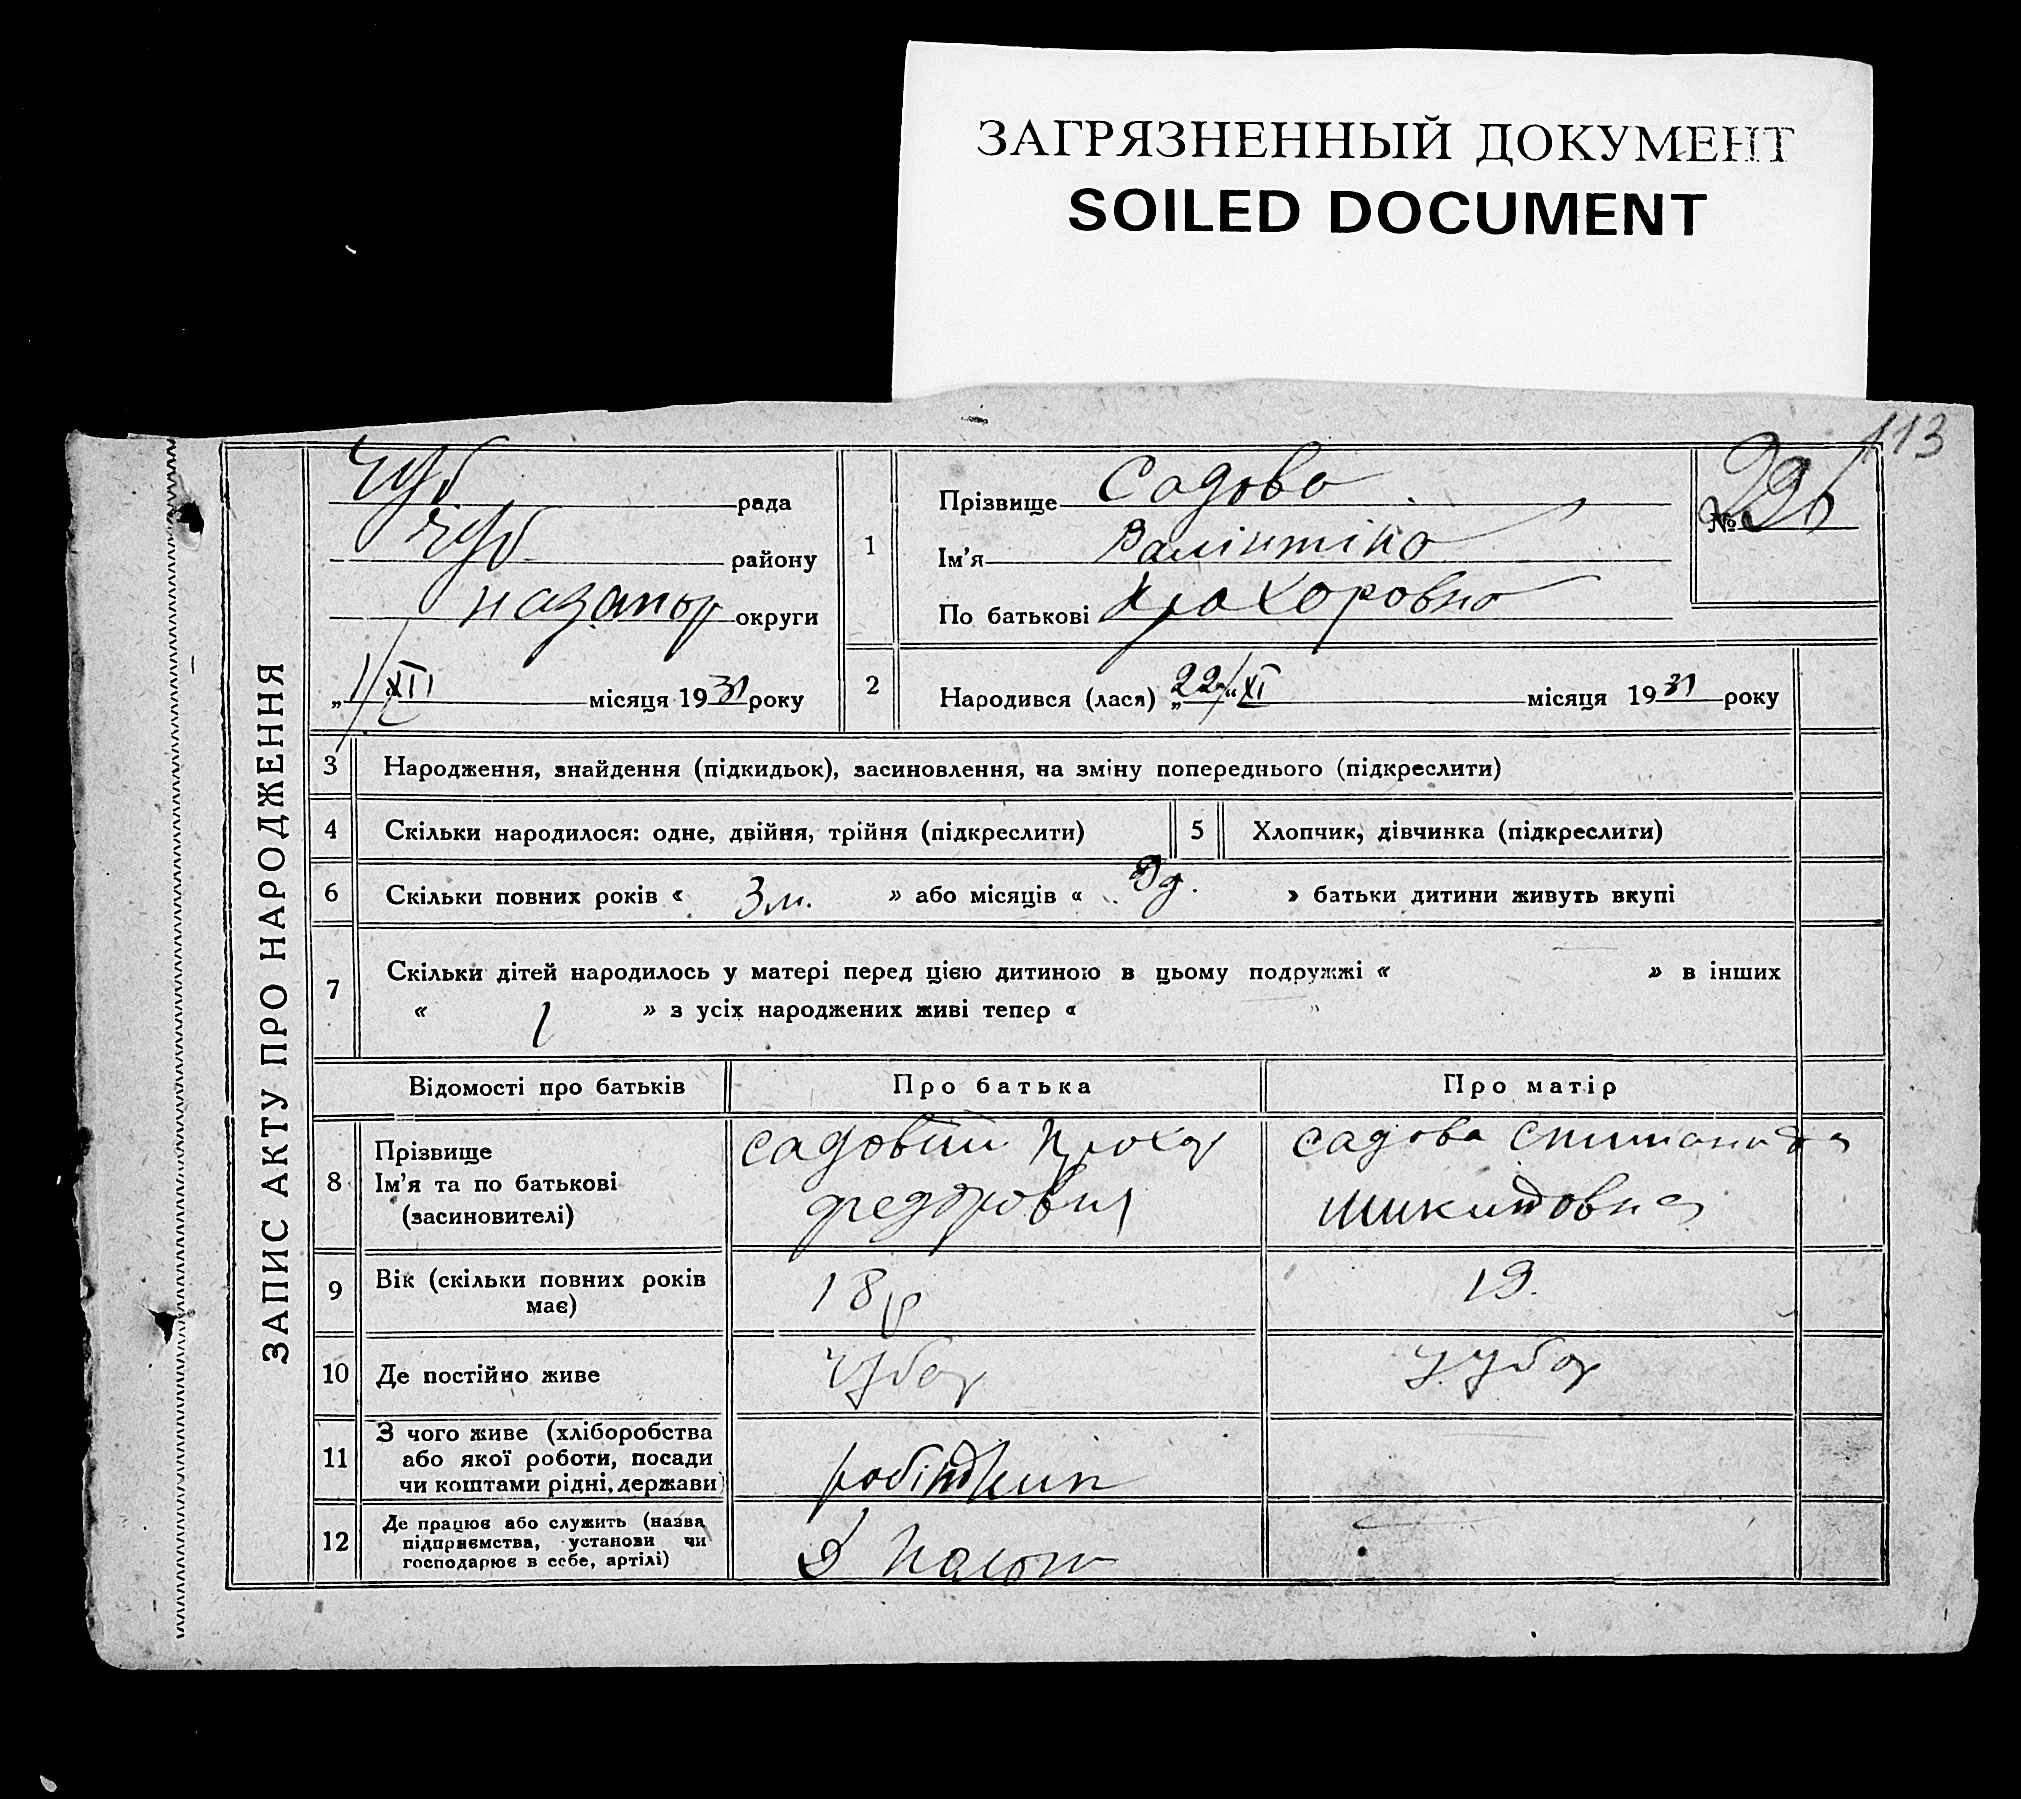 ЗАГРЯЗНЕННЫЙ ДОКУМЕНТ
SOILED DOCUMENT
113
ЗАПИС АКТУ ПРО НАРОДЖЕННЯ
Чуб рада
Чуб району
округи
„1/XII місяця 1931 року
1
Прізвище Садова
Ім'я Валінтіна
По батькові Прохоровна
№
2 Народився (лася) „22/“ XI місяця 1931 року
3 Народження, знайдення (підкидьок), засиновлення, на зміну попереднього (підкреслити)
4 Скільки народилося: одне, двійня, трійня (підкреслити) 5 Хлопчик, дівчинка (підкреслити)
6 Скільки повних років « 3 м. » або місяців « » батьки дитини живуть вкупі
7 Скільки дітей народилось у матері перед цією дитиною в цьому подружжі « » в інших
« 1 » з усіх народжених живі тепер « »
Відомості про батьків Про батька Про матір
8 Прізвище
Ім'я та по батькові
(засиновителі)
Садовий Прохор
Садова
9 Вік (скільки повних років
має)
18 р
19.
10 Де постійно живе
11 З чого живе (хліборобства
або якої роботи, посади
чи коштами рідні, держави)
12 Де працює або служить (назва
підприємства, установи чи
господарює в себе, артілі)